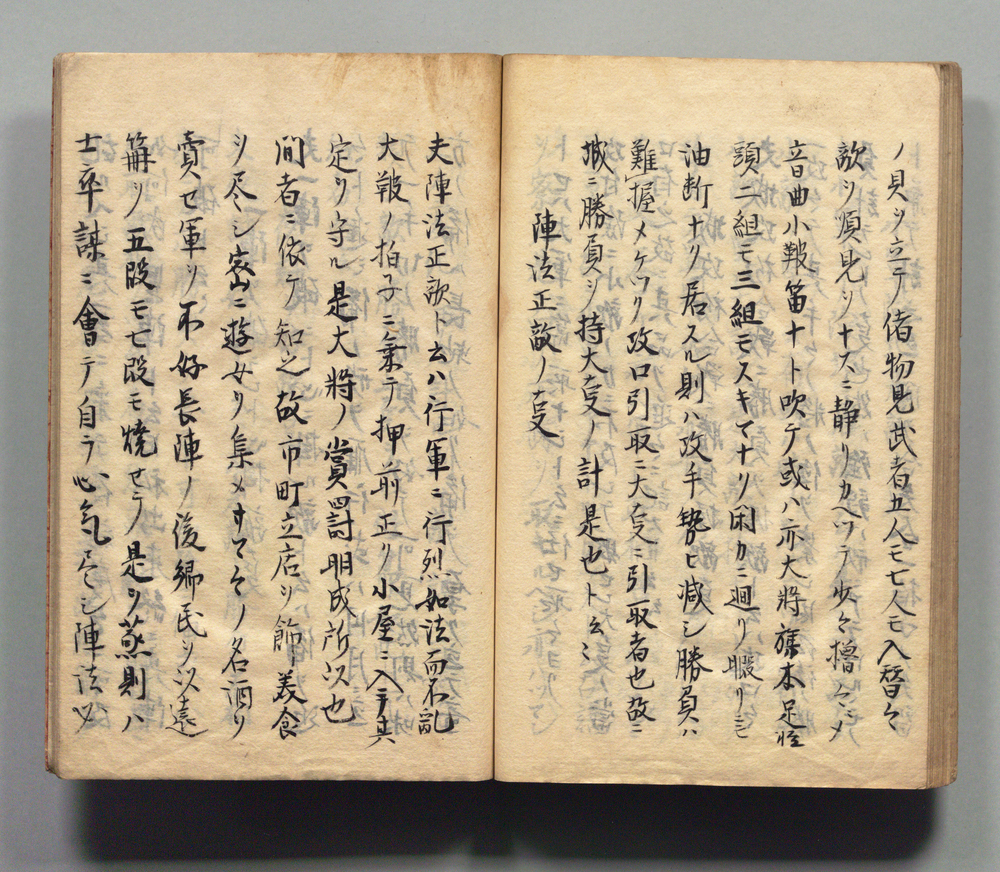 ノ貝ヲ立テノ偖物見武者五人モ七人モ入替々
敵ヲ順見ヲナスニ静リカヘツテ少々擔
音曲小鞁笛ナトト吹テ或ハ亦大將旗本足軽
頭二組モ三組モスキテナリ閑カニ廻リ暇リ
油断ナリ居スル則ハ攻手勢ヒ減シ勝負ハ
難握メケツリ攻口引取ニ大叓ニ引取者也故ニ
城ニ勝負ヲ持大叓ノ計是也ト云々
陣法正敵ノ叓
夫陣法正歌ト云ハ行軍ニ行烈如法而不乱
大鞁ノ拍子ニ乗テ押前正リ小屋ニ入手其
定リ守ル是大將ノ賞罰明成所以也
間者ニ依テ知之故市町立店リ餝美食
ヲ尽シ密ニ遊女リ集メ ノ名酒リ
賣セ軍リ不好長陣ノ後郷民ヲ以遠
篝ヲ五段モ七段モ焼セラノ是ヲ蒸則ハ
士卒謀ニ會テ自ラ心気尽シ陣法必